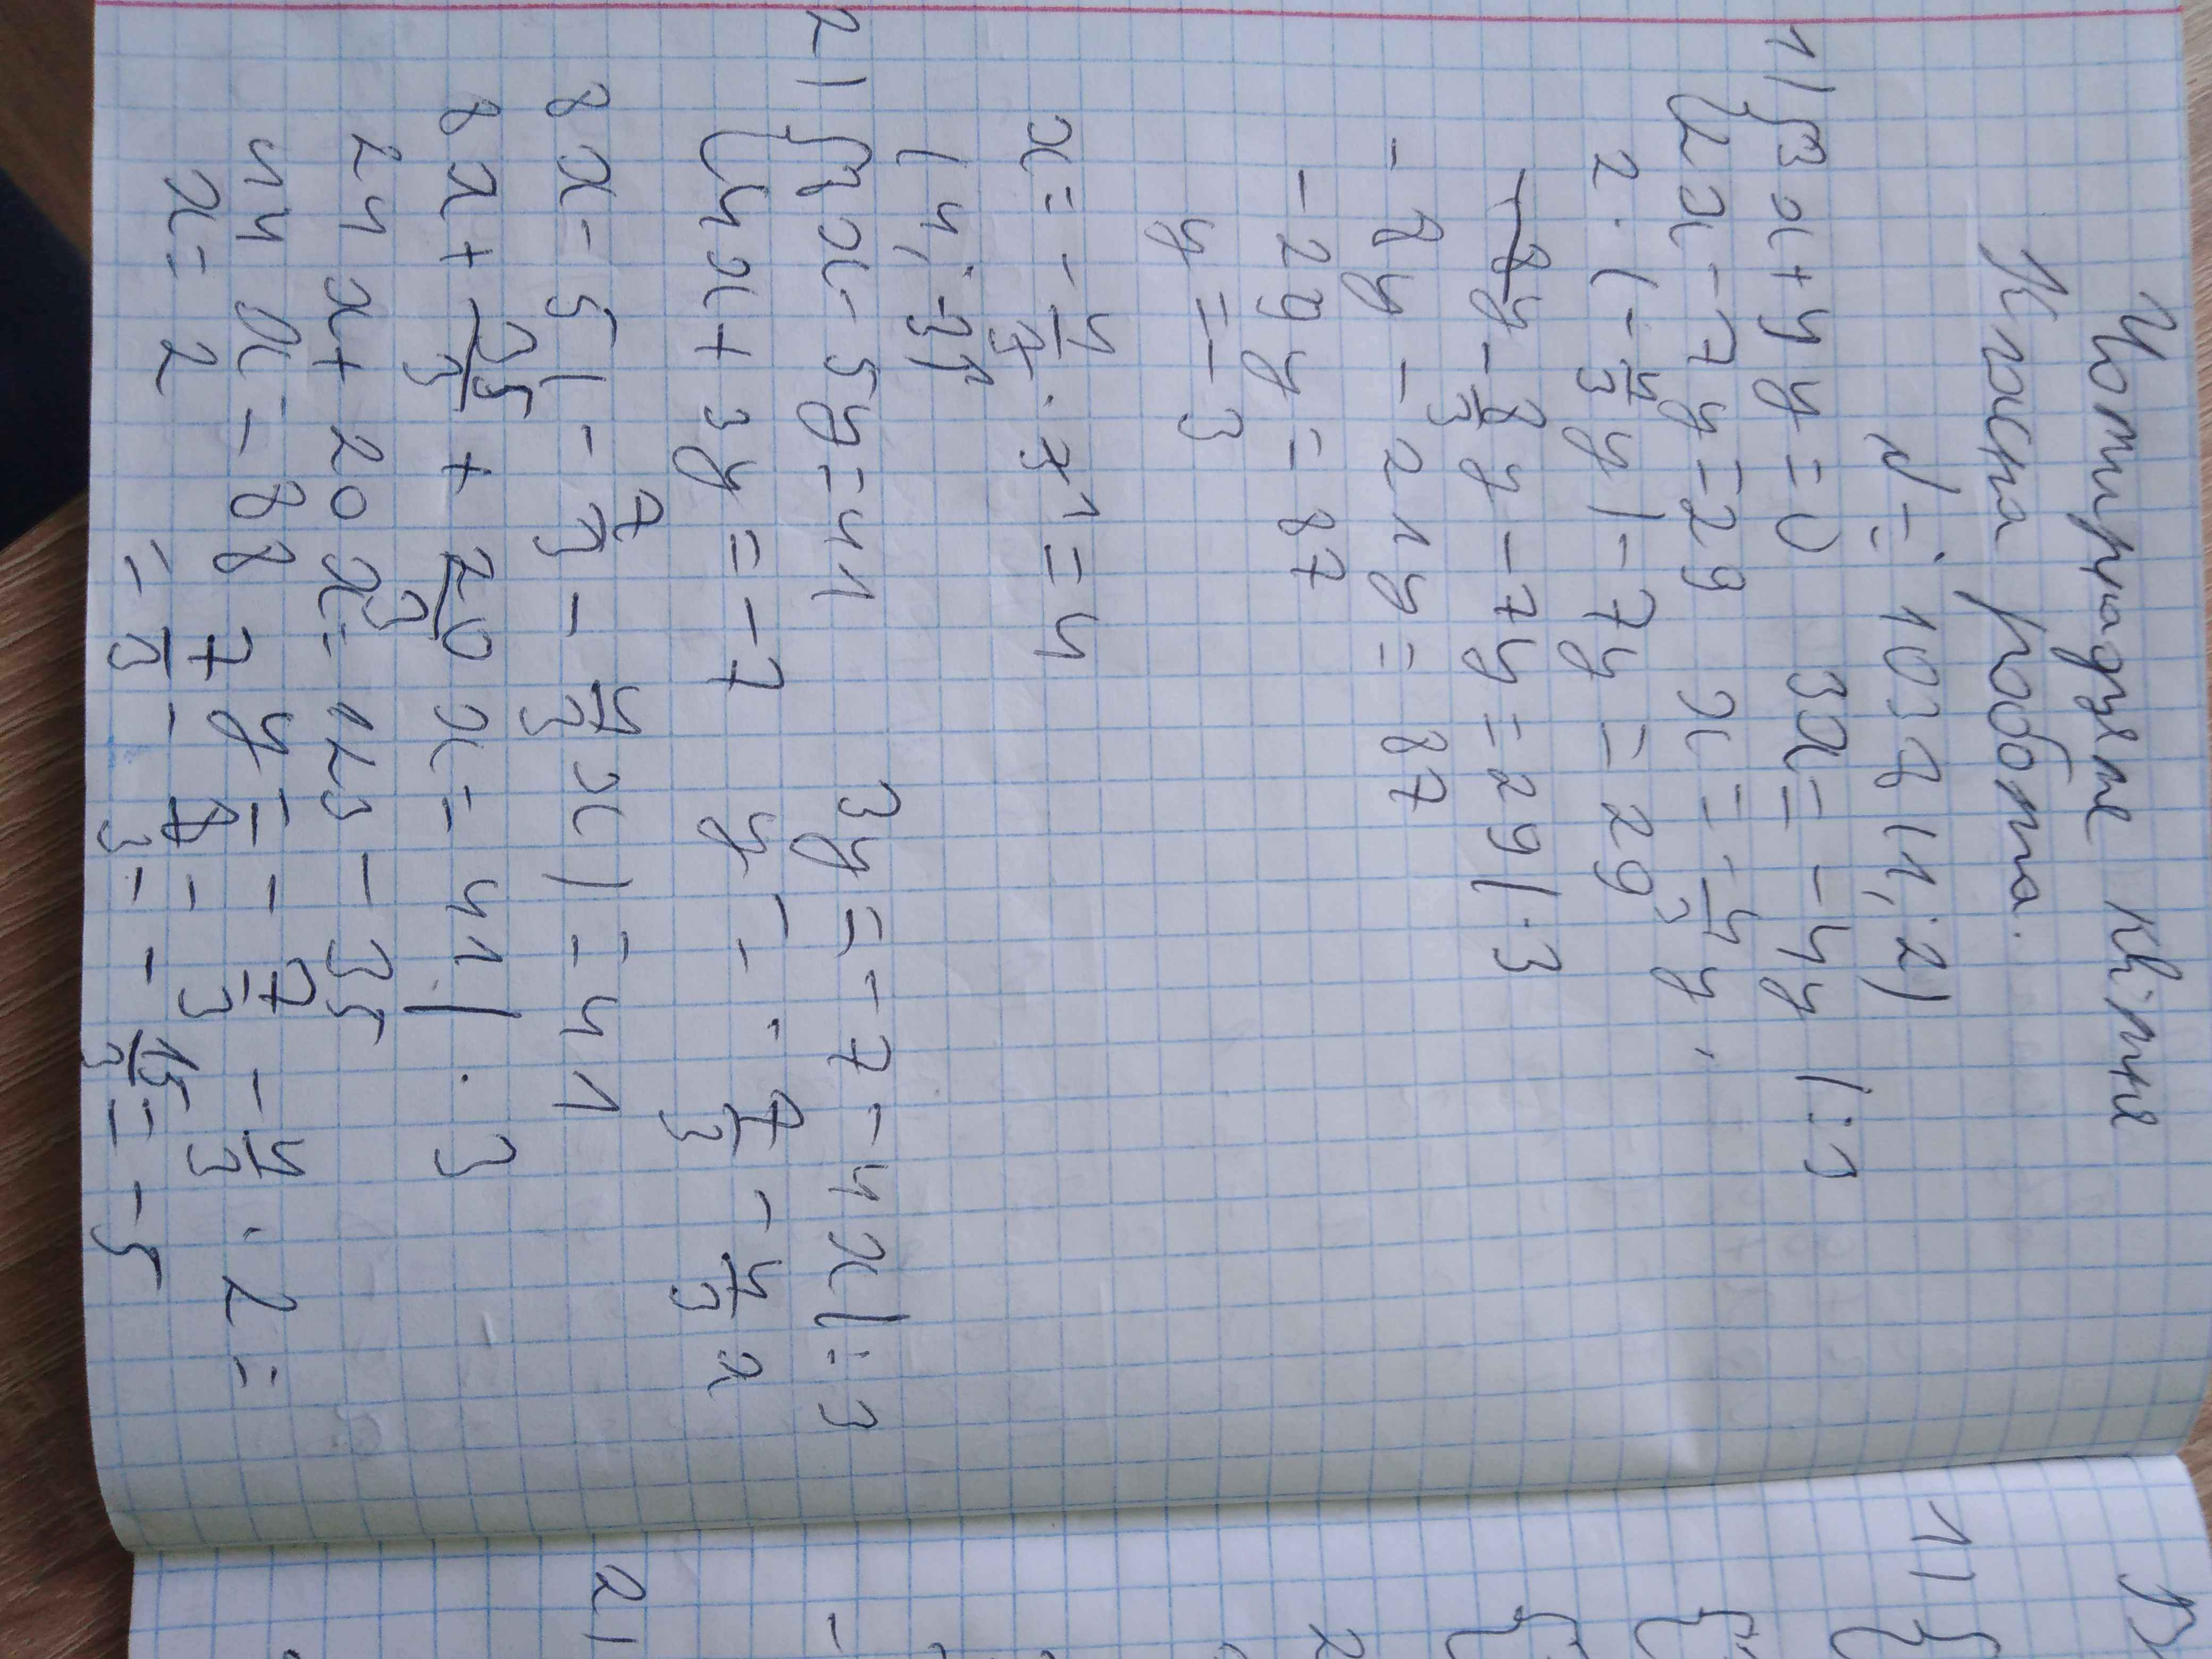 Чотирнадцяте квітня
Класна робота.
№ 1038 (1; 2)
1) { 3x + 4y = 0   3x = -4y | : 3
{ 2x - 7y = 29   x = -4/3 y,
2 · (-4/3 y) - 7y = 29
-8/3 y - 7y = 29 | · 3
-8y - 21y = 87
-29y = 87
y = -3
x = -4/3 · -3 = 4
(4; -3)
2) { 8x - 5y = 41   3y = -7 - 4x | : 3
{ 4x + 3y = -7   y = -7/3 - 4/3 x
8x - 5(-7/3 - 4/3 x) = 41
8x + 35/3 + 20/3 x = 41 | · 3
24x + 20x = 123 - 35
44x = 88   y = -7/3 - 4/3 · 2 =
x = 2   = -7/3 - 8/3 = -15/3 = -5
1) {
2)